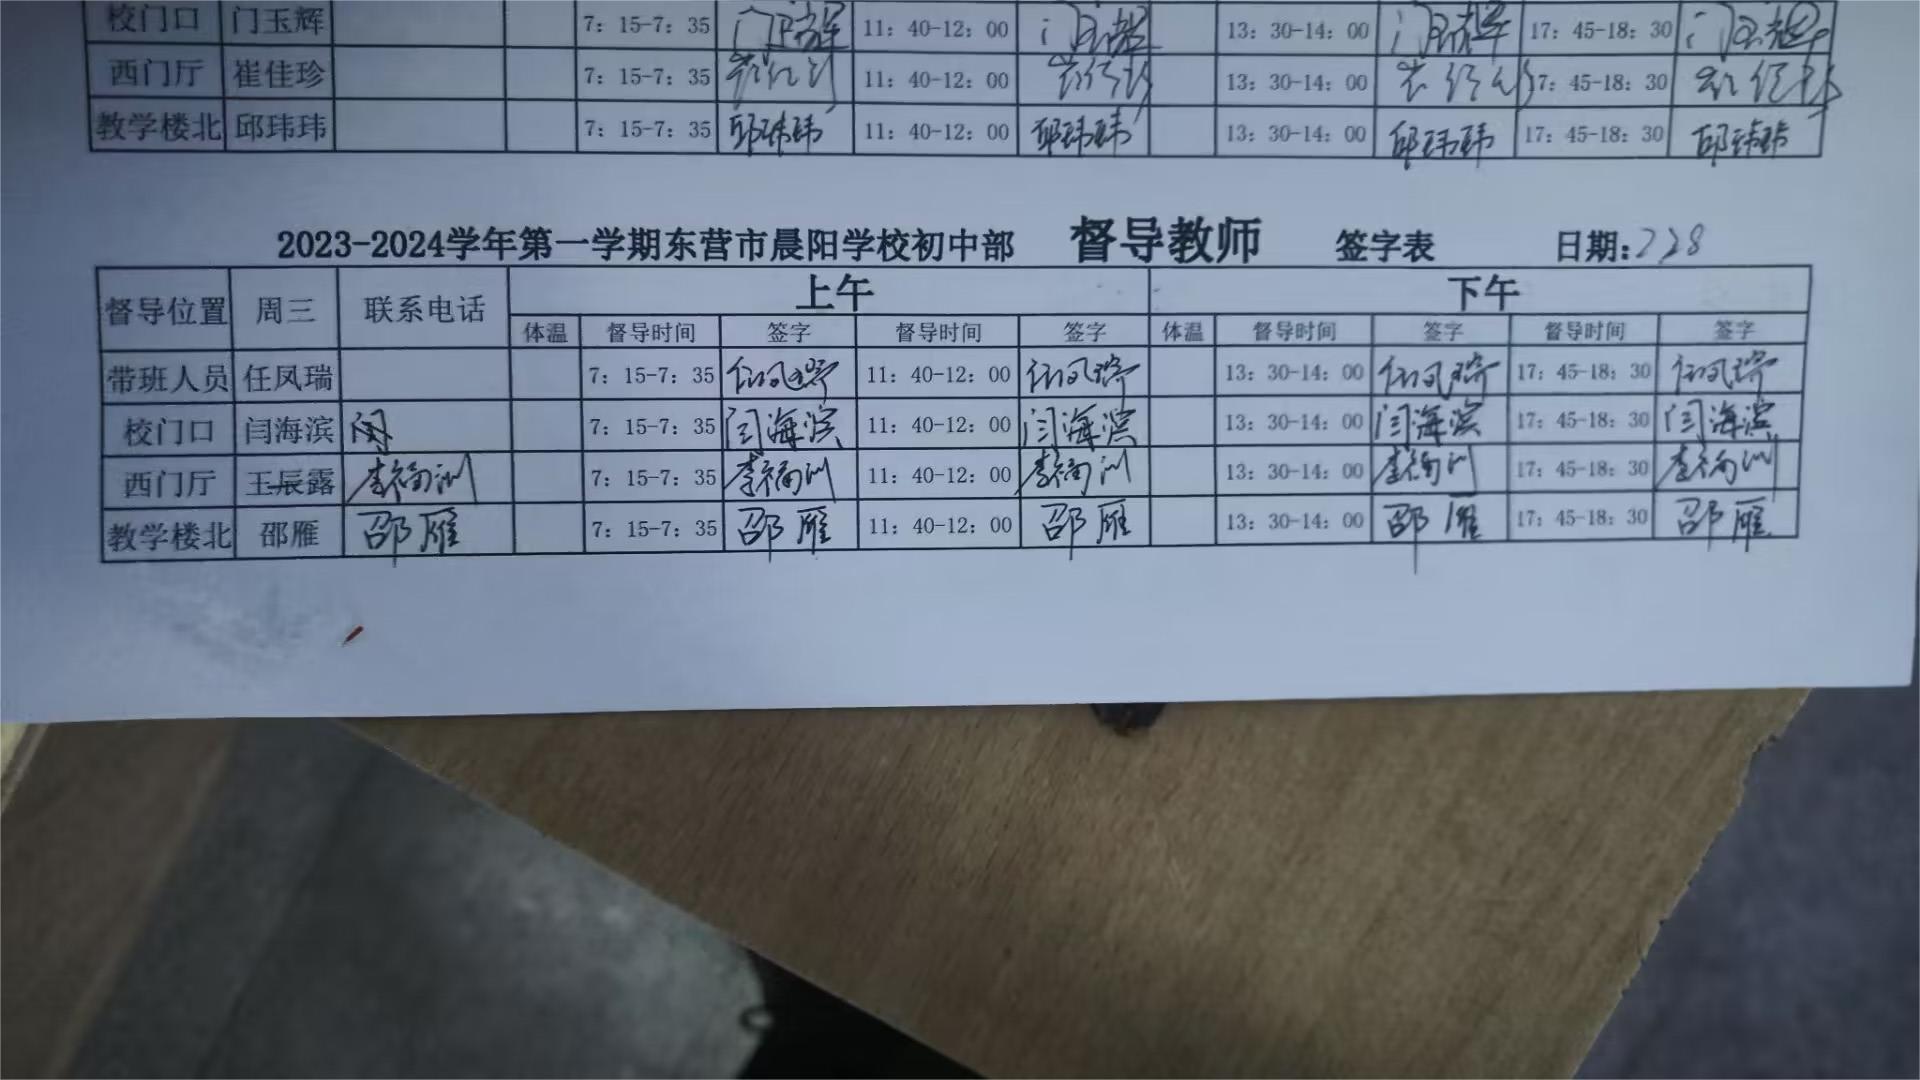 校门口 门玉辉 7：15-7：35 门玉辉 11：40-12：00 门玉辉 13：30-14：00 门玉辉 17：45-18：30 门玉辉
西门厅 崔佳珍 7：15-7：35 11：40-12：00 13：30-14：00 17：45-18：30
教学楼北 邱玮玮 7：15-7：35 邱玮玮 11：40-12：00 邱玮玮 13：30-14：00 邱玮玮 17：45-18：30 邱玮玮
2023-2024学年第一学期东营市晨阳学校初中部 督导教师 签字表 日期：2.28
督导位置 周三 联系电话 上午 下午
体温 督导时间 签字 督导时间 签字 体温 督导时间 签字 督导时间 签字
带班人员 任凤瑞 7：15-7：35 任凤瑞 11：40-12：00 任凤瑞 13：30-14：00 任凤瑞 17：45-18：30 任凤瑞
校门口 闫海滨 7：15-7：35 闫海滨 11：40-12：00 闫海滨 13：30-14：00 闫海滨 17：45-18：30 闫海滨
西门厅 王辰露 李福洲 7：15-7：35 李福洲 11：40-12：00 李福洲 13：30-14：00 李福洲 17：45-18：30 李福洲
教学楼北 邵雁 邵雁 7：15-7：35 邵雁 11：40-12：00 邵雁 13：30-14：00 邵雁 17：45-18：30 邵雁